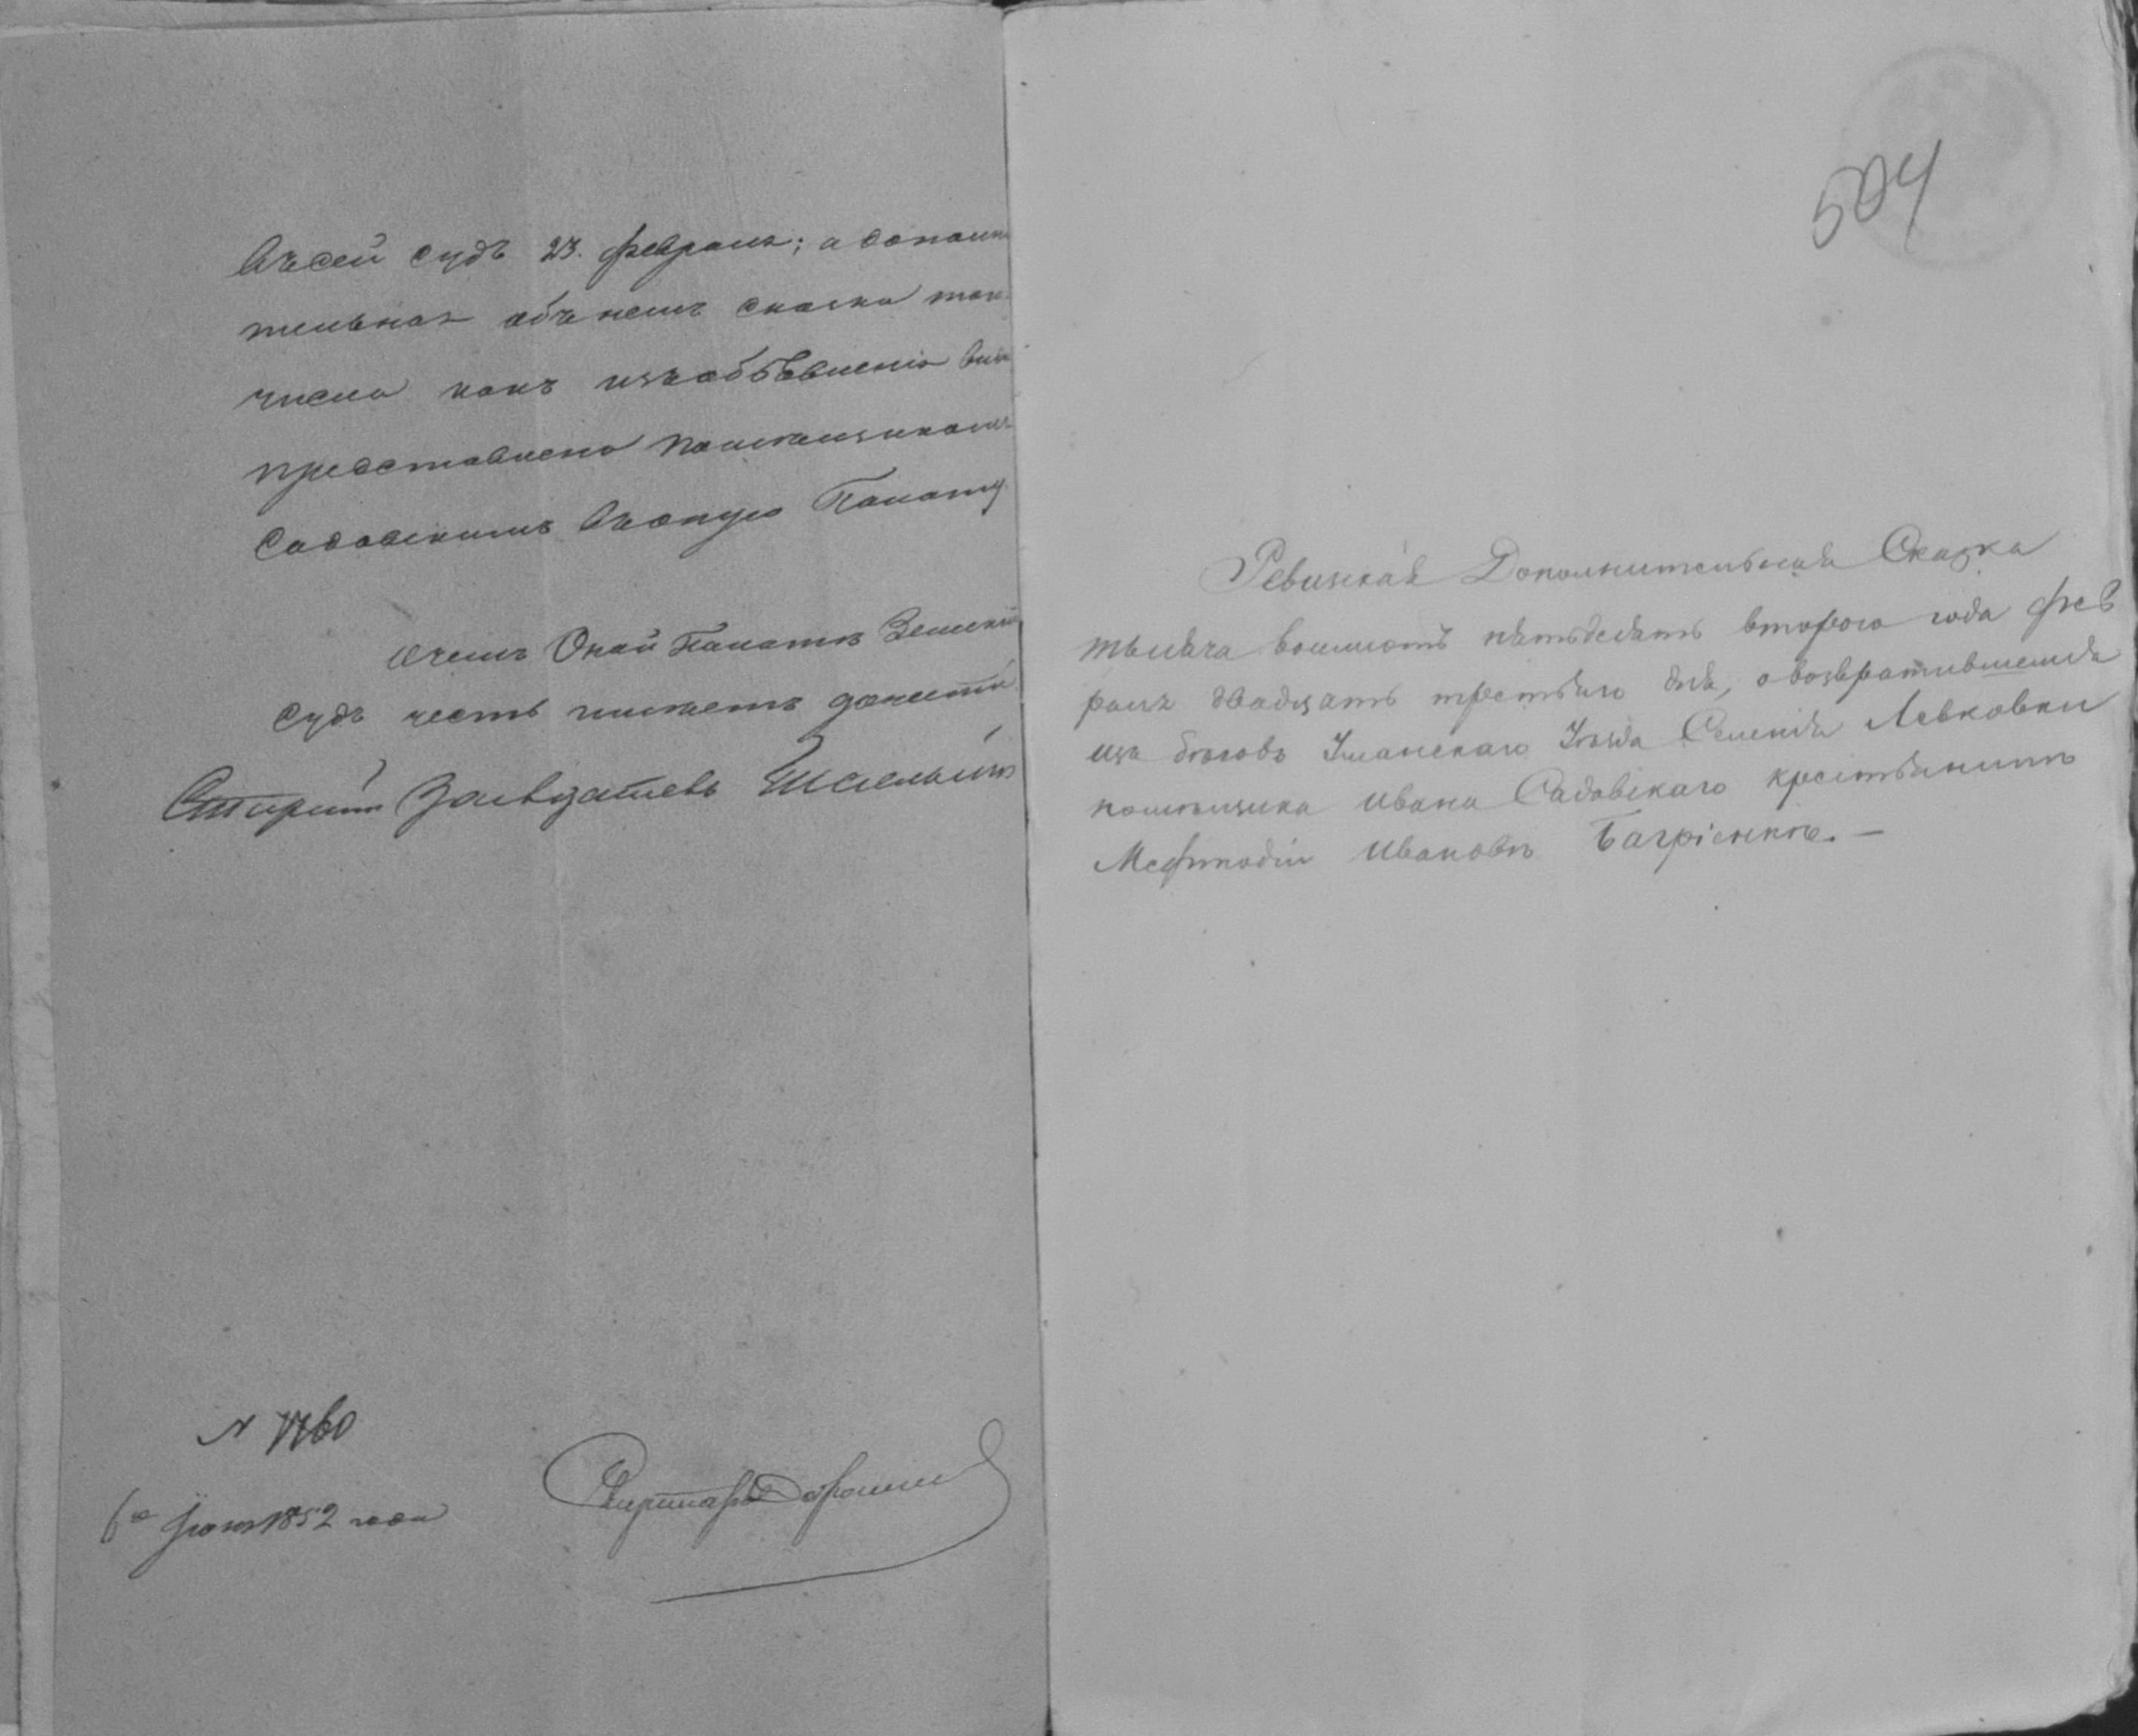 въ сей судъ 23. февраля; а дополни
тельная объ немъ сказка того
числа какъ изъ объявленія видно
представлена помѣщикомъ
Садовскимъ въ оную Палату
О чемъ Оной Палатѣ Земскій
судъ честь имѣетъ донести
Старшій Засѣдатель
N 7760
6го Іюня 1852 года
Секретарь
504
Ревизская Дополнительная Сказка
тысяча восемсотъ пятьдесятъ второго года фев
раля двадцать третьяго дня, о возвратившемся
изъ бѣговъ Уманскаго Уѣзда Селенія Левковки
помѣщика Ивана Садовскаго крестьянинѣ
Мефтодіи Ивановѣ Багріенкѣ.—